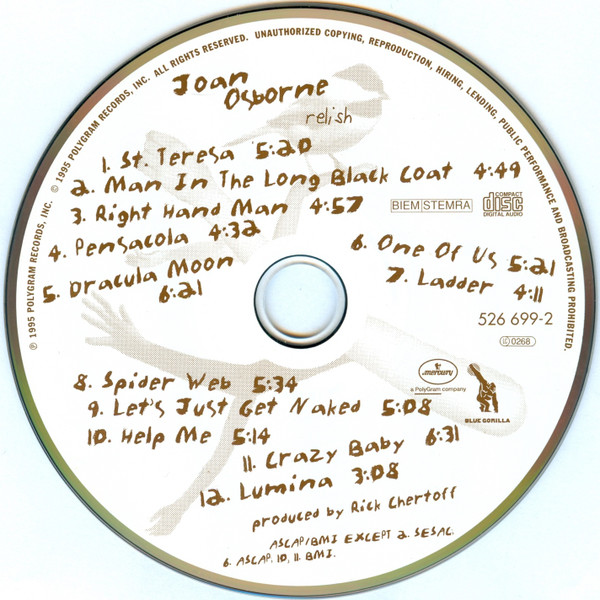 ℗ 1995 POLYGRAM RECORDS, INC. © 1995 POLYGRAM RECORDS, INC. ALL RIGHTS RESERVED. UNAUTHORIZED COPYING, REPRODUCTION, HIRING, LENDING, PUBLIC PERFORMANCE AND BROADCASTING PROHIBITED.
Joan
Osborne
relish
1. St. Teresa 5:20
2. Man In The Long Black Coat 4:49
3. Right Hand Man 4:57
BIEM STEMRA
COMPACT
disc
DIGITAL AUDIO
4. Pensacola 4:32
5. Dracula Moon
6:21
6. One Of Us 5:21
7. Ladder 4:11
526 699-2
0268
8. Spider Web 5:34
9. Let's Just Get Naked 5:08
10. Help Me 5:14
11. Crazy Baby 6:31
12. Lumina 3:08
mercury
a PolyGram company
BLUE GORILLA
produced by Rick Chertoff
ASCAP/BMI EXCEPT 2. SESAC.
6. ASCAP. 10, 11. BMI.